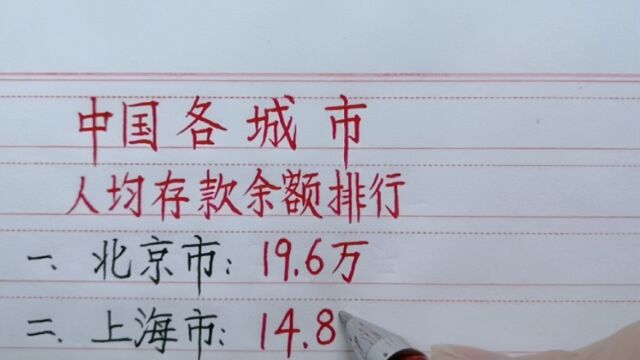 中国各城市
人均存款余额排行
一、北京市：19.6万
二、上海市：14.8